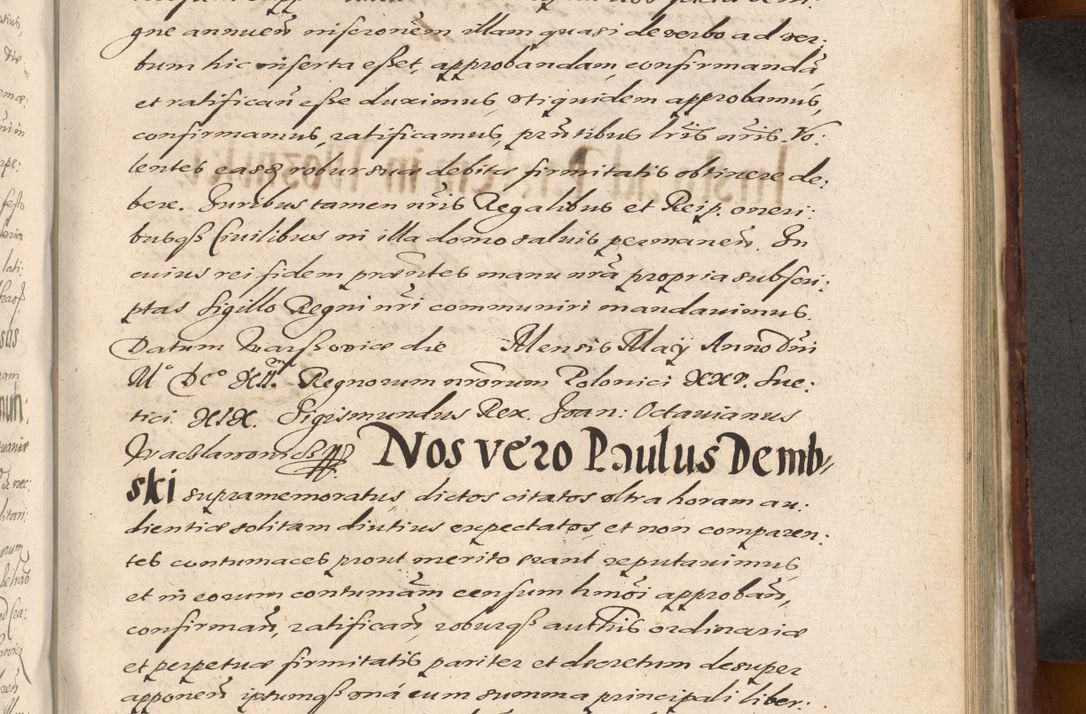 gne annuen̄ inscrõnem illam quasi de verbo ad ver:
bum hic inserta esset, approbandam, confirmandã
et ratifican̄ esse duximus, utiquidem approbamus,
confirmamus, ratificamus, prn̄tibus lr̄is nr̄is. Vo:
lentes easq̨ robur suæ debitæ firmitatis obtinere de:
bere. Juribus tamen nr̄is Regalibus et Reip. oneri:
busqß Ciuilibus in illa domo saluis permanen̄. In
cuius rei fidem præn̄tes manu nr̄a propria subscri:
ptas Sigillo Regni nr̄i communiri mandauimus.
Datum Warssouiæ die Mensis Maÿ Anno Dn̄i
M° DC° XII. Regnorum nr̄orum Polonici XXV. Sue:
tici XIX. Sigismundus Rex. Joan: Octauianus
Waczlawowicz Nos vero Paulus Demb-
ski supramemoratus, dictos citatos ultra horam au:
dientiæ solitam diutius expectatos, et non comparen:
tes contumaces prout merito erant reputauimus,
et in eorum contumãm censum hm̄oi approban̄,
confirman̄, ratifican̄, roburqß autht̄is ordinariæ
et perpetuæ firmitatis pariter et decretum desuper
apponen̄ ipsumqß unã cum summa principali liber: